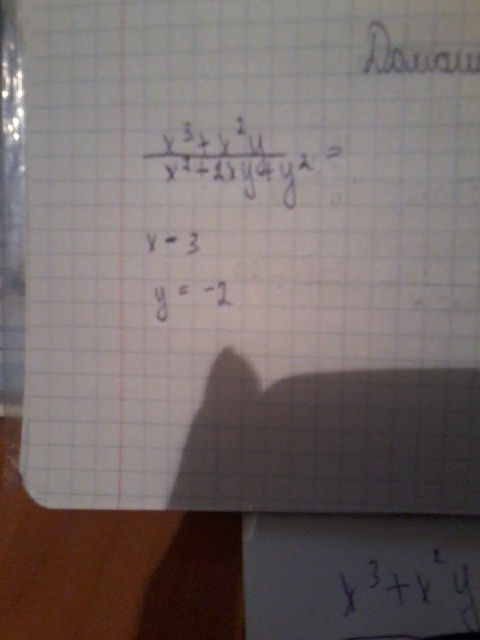 Домаш
x³+x²y
x²+2xy+y² =
x - 3
y = -2
x³+x²y